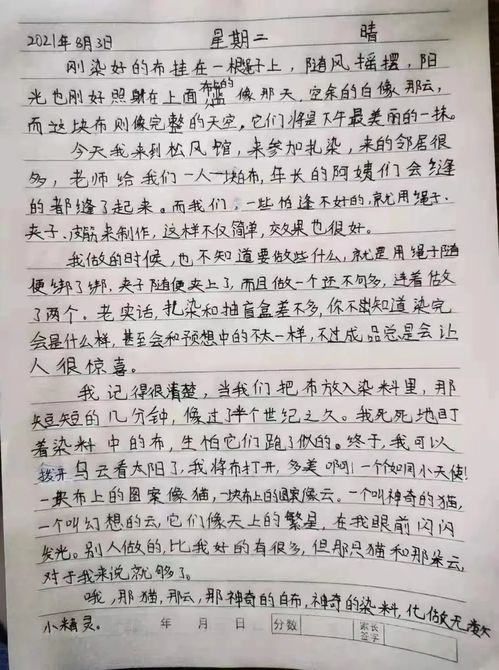 2021年8月3日 星期二 晴
刚染好的布挂在一根绳子上，随风摇摆，阳
光也刚好照射在上面布上的蓝像那天，空余的白像那云，
而这块布则像完整的天空。它们将是下午最美丽的一抹。
今天我来到松风馆，来参加扎染，来的邻居很
多，老师给我们一人一块布，年长的阿姨们会缝
的都缝了起来。而我们，一些怕逢不好的，就用绳子、
夹子、皮筋来制作，这样不仅简单，效果也很好。
我做的时候，也不知道要做些什么，就是用绳子随
便绑了绑，夹子随便夹上了，而且做一个还不句多，连着做
了两个。老实话，扎染和抽盲盒差不多，你不知道染完
会是什么样，甚至会和预想中的不太一样，不过成品总是会让
人很惊喜。
我记得很清楚，当我们把布放入染料里，那
短短的几分钟，像过了半个世纪之久。我死死地盯
着染料中的布，生怕它们跑了似的。终于，我可以
拨开乌云看太阳了，我将布打开，多美啊！一个如同小天使！
一块布上的图案像猫，一块布上的图案像云。一个叫神奇的猫，
一个叫幻想的云，它们像天上的繁星，在我眼前闪闪
发光。别人做的，比我好的有很多，但那只猫和那朵云，
对于我来说就够了。
哦，那猫，那云，那神奇的白布，神奇的染料，化做无数
小精灵。 年 月 日 分数 家长签字